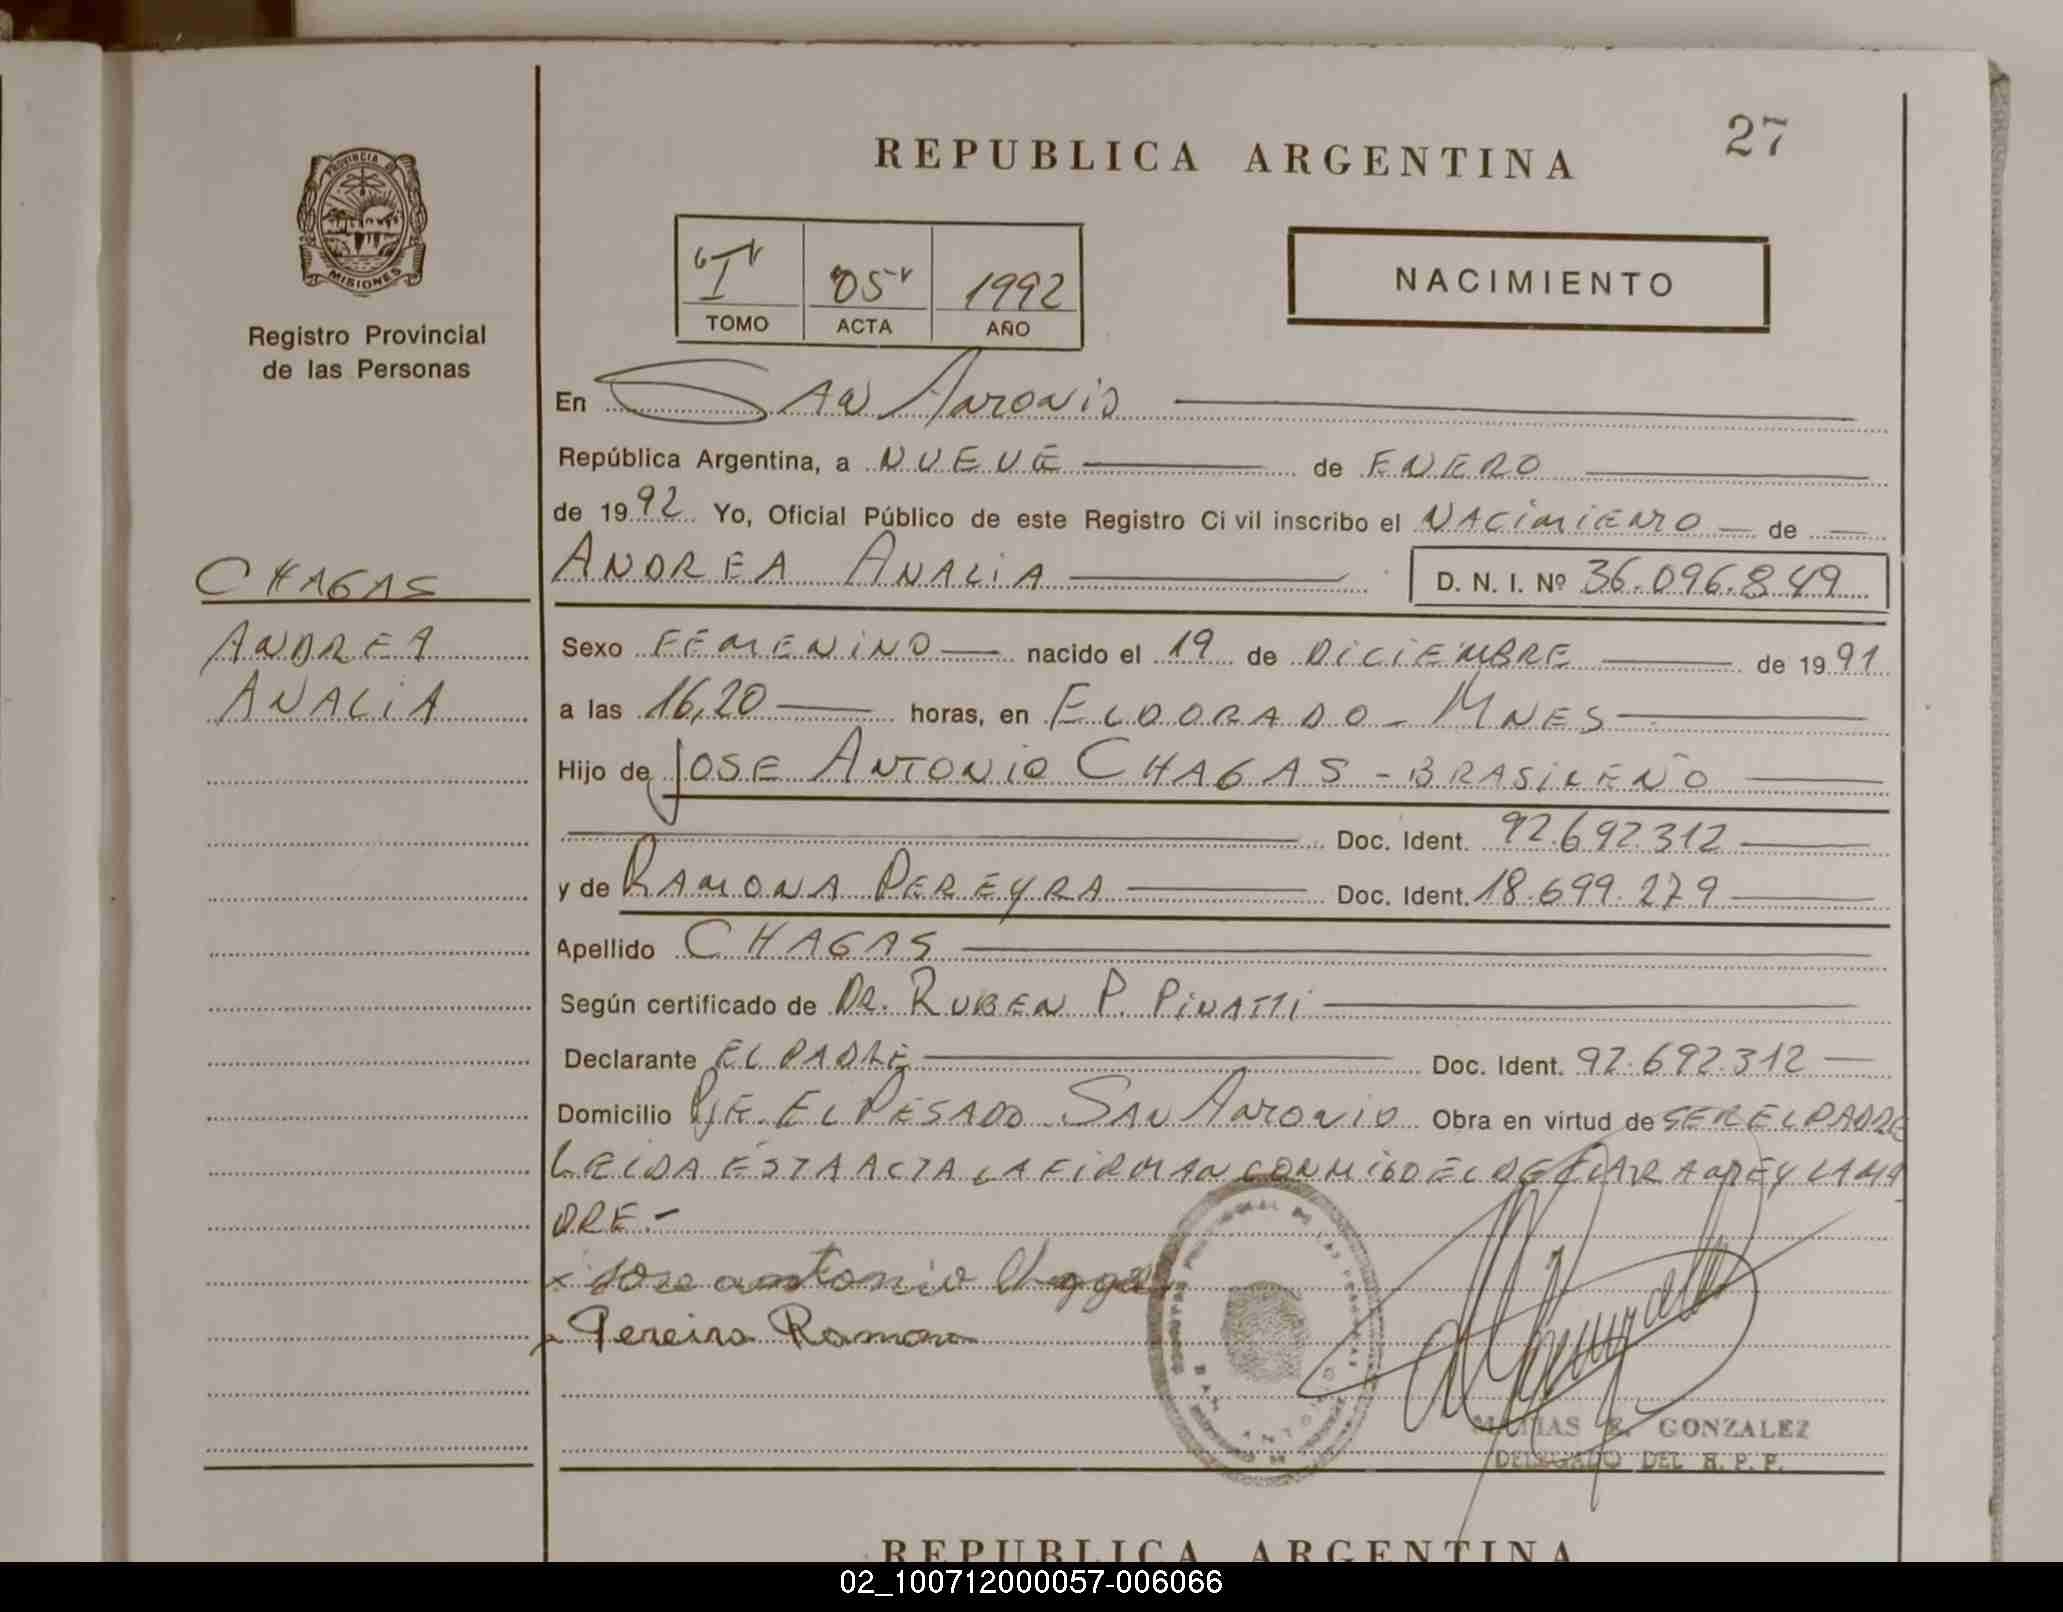 27
REPUBLICA ARGENTINA
PROVINCIA DE
MISIONES
Registro Provincial
de las Personas
"I" "05" 1992
TOMO ACTA AÑO
NACIMIENTO
En SAN ANTONIO
República Argentina, a NUEVE de ENERO
de 1992 Yo, Oficial Público de este Registro Civil inscribo el NACIMIENTO de
CHAGAS
ANDREA ANALIA D. N. I. Nº 36.096.849
ANDREA
ANALIA
Sexo FEMENINO nacido el 19 de DICIEMBRE de 1991
a las 16,20 horas, en ELDORADO - MNES
Hijo de JOSE ANTONIO CHAGAS - BRASILEÑO
Doc. Ident. 92.692.312
y de RAMONA PEREYRA Doc. Ident. 18.699.279
Apellido CHAGAS
Según certificado de DR. RUBEN P. PINATTI
Declarante EL PADRE Doc. Ident. 92.692.312
Domicilio PJE. EL PESADO SAN ANTONIO Obra en virtud de SER EL PADRE
LEIDA ESTA ACTA LA FIRMAN CONMIGO EL DECLARANTE Y LA MA
DRE.-
x Jose antonio Chagas
x Pereira Ramona
MATIAS E. GONZALEZ
DELEGADO DEL R. P. P.
REPUBLICA ARGENTINA
02_100712000057-006066